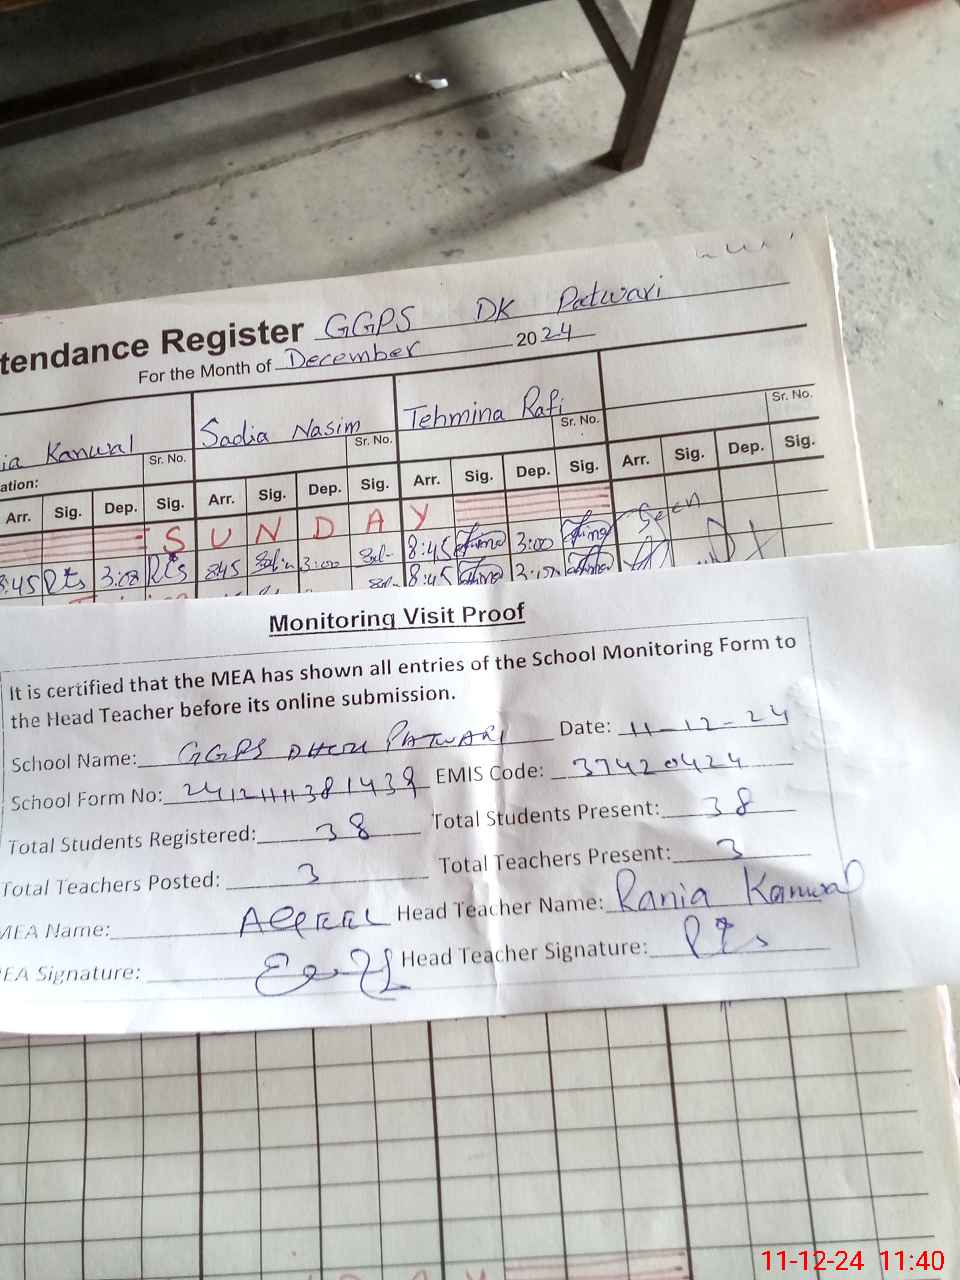 tendance Register GGPS DK Patwari
For the Month of December 2024
ia Kanwal Sr. No. Sadia Nasim Sr. No. Tehmina Rafi Sr. No. Sr. No.
ation:
Arr. Sig. Dep. Sig. Arr. Sig. Dep. Sig. Arr. Sig. Dep. Sig. Arr. Sig. Dep. Sig.
S U N D A Y
8:45 Rts 3:00 Rts 845 3:00 8:45 3:00 Seen
8:45 3:00
Monitoring Visit Proof
It is certified that the MEA has shown all entries of the School Monitoring Form to
the Head Teacher before its online submission.
School Name: GGPS DHOK PATWARI Date: 11-12-24
School Form No: EMIS Code: 37420424
Total Students Registered: 38 Total Students Present: 38
Total Teachers Posted: 3 Total Teachers Present: 3
MEA Name: Head Teacher Name: Rania Kanwal
EA Signature: Head Teacher Signature: Rts
11-12-24 11:40